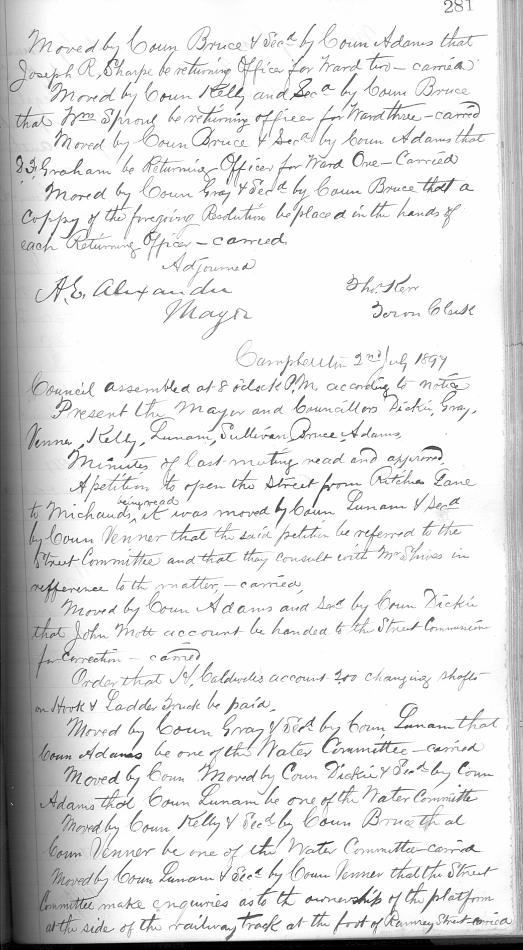 281
Moved by Coun Bruce & Secd by Coun Adams that
Joseph R, Sharpe be returning Officer for Ward two - carried
Moved by Coun Kelly and Secd by Coun Bruce
that Wm Sproul be returning officer for Ward three - carried
Moved by Coun Bruce & Secd by Coun Adams that
Graham be Returning Officer for Ward One - Carried
Moved by Coun Gray & Secd by Coun Bruce that a
coppy of the foregoing Resolution be placed in the hands of
each Returning Officer - carried
Adjourned
A.E. Alexander Thos Kerr
Mayor Town Clerk
Campbellton 2nd July 1897
Council assembled at 8 oclock P.M. according to notice
Present the Mayor and Councillors Dickie, Gray,
Venner, Kelly, Lunam, Sullivan, Bruce, Adams.
Minutes of last meeting read and approved,
A petition to open the Street from Ritchies Lane
to Michauds, being read it was moved by Coun Lunam & Secd
by Coun Venner that the said petition be referred to the
Street Committee and that they consult with Mr Shives in
refference to the matter, - carried,
Moved by Coun Adams and Secd by Coun Dickie
that John Mott account be handed to the Street
for Correction - carried
Order that Caldwells account 2.00 changing shafts
on Hook & Ladder Truck be paid.
Moved by Coun Gray & Secd by Coun Lunam that
Coun Adams be one of the Water Committee - carried
Moved by Coun Moved by Coun Dickie & Secd by Coun
Adams that Coun Lunam be one of the Water Committee
Moved by Coun Kelly & Secd by Coun Bruce that
Coun Venner be one of the Water Committee - carried
Moved by Coun Lunam & Secd by Coun Venner that the Street
Committee make enquiries as to the ownership of the platform
at the side of the railway track at the foot of Ramsey Street - carried